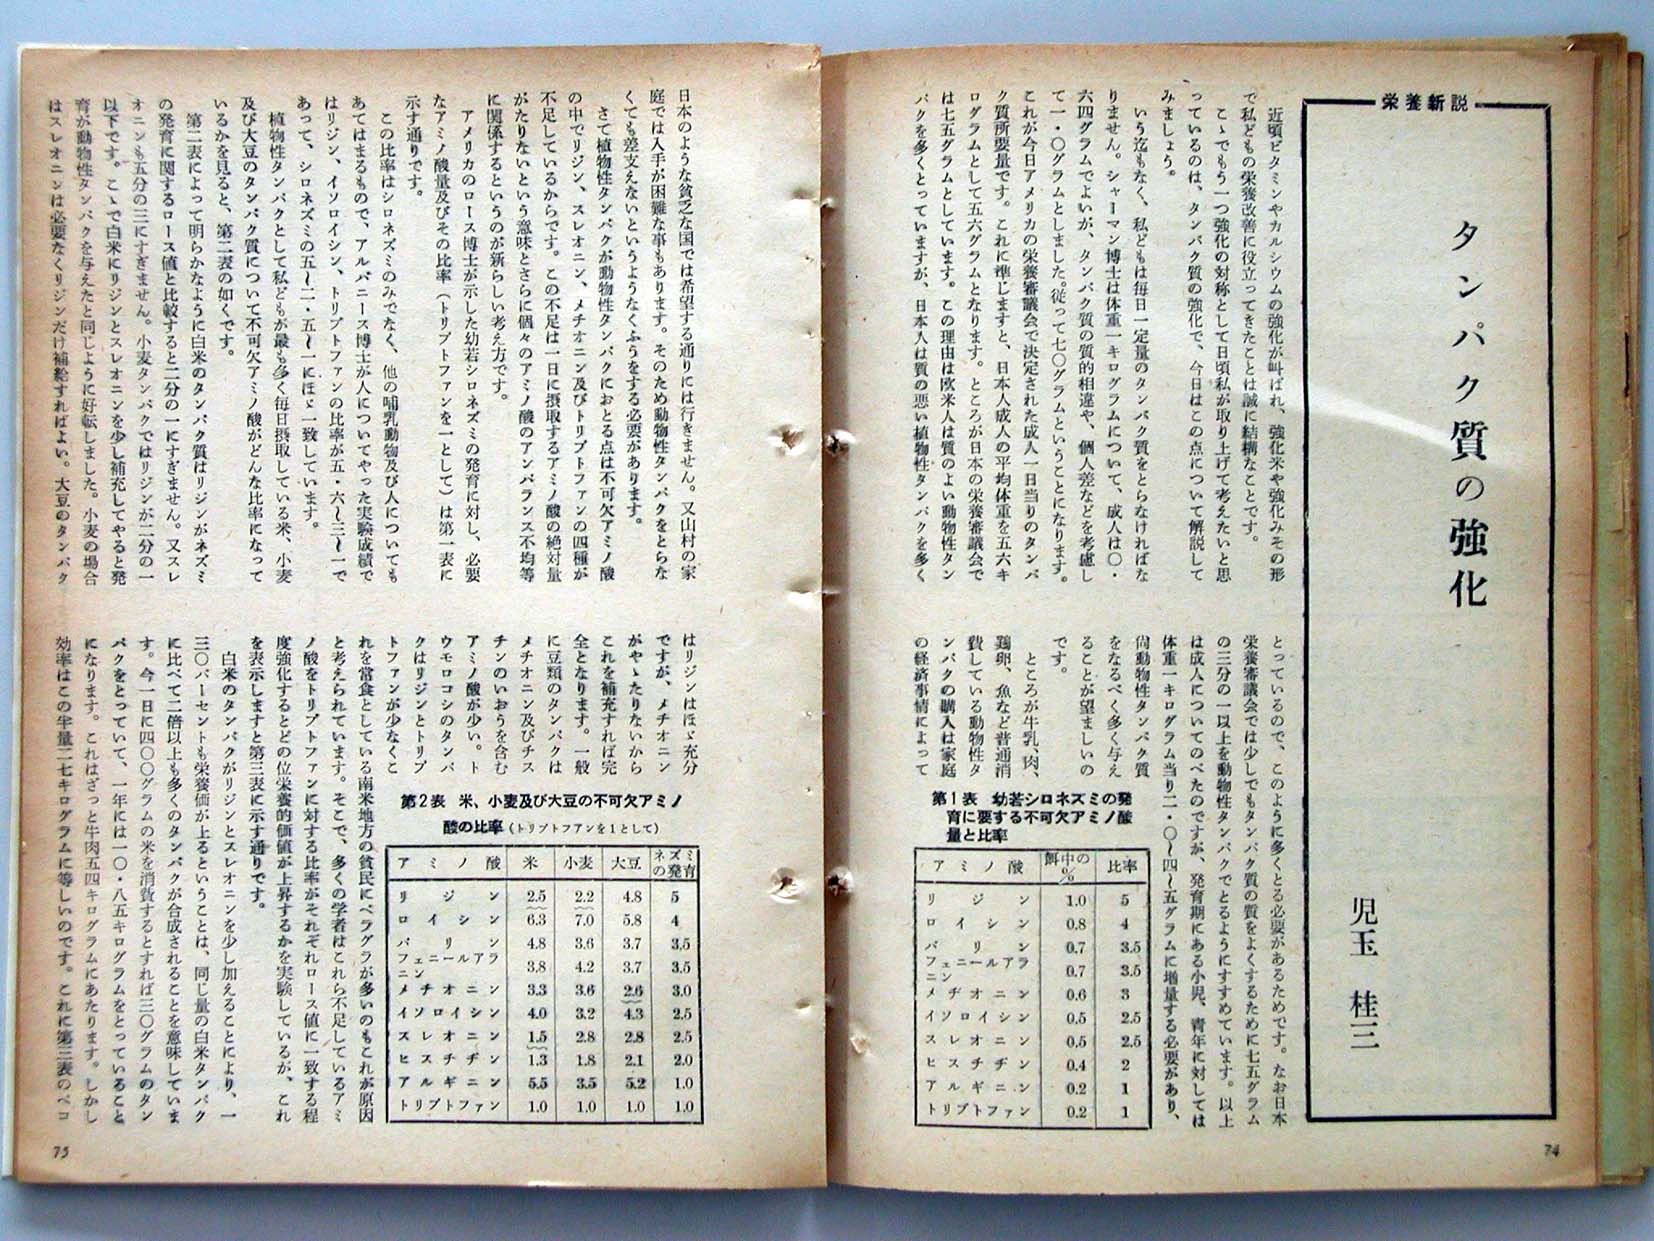 栄養新説
タンパク質の強化
児玉 桂三
近頃ビタミンやカルシウムの強化が叫ばれ、強化米や強化みその形
で私どもの栄養改善に役立ってきたことは誠に結構なことです。
こゝでもう一つ強化の対称として日頃私が取り上げて考えたいと思
っているのは、タンパク質の強化で、今日はこの点について解説して
みましょう。
いう迄もなく、私どもは毎日一定量のタンパク質をとらなければな
りません。シャーマン博士は体重一キログラムについて、成人は〇・
六四グラムでよいが、タンパク質の質的相違や、個人差などを考慮し
て一・〇グラムとしました。従って七〇グラムということになります。
これが今日アメリカの栄養審議会で決定された成人一日当りのタンパ
ク質所要量です。これに準じますと、日本人成人の平均体重を五六キ
ログラムとして五六グラムとなります。ところが日本の栄養審議会で
は七五グラムとしています。この理由は欧米人は質のよい動物性タン
パクを多くとっていますが、日本人は質の悪い植物性タンパクを多く
とっているので、このように多くとる必要があるためです。なお日本
栄養審議会では少しでもタンパク質の質をよくするために七五グラム
の三分の一以上を動物性タンパクでとるようにすすめています。以上
は成人についてのべたのですが、発育期にある小児、青年に対しては
体重一キログラム当り二・〇〜四〜五グラムに増量する必要があり、
尚動物性タンパク質
をなるべく多く与え
ることが望ましいの
です。
ところが牛乳、肉、
鶏卵、魚など普通消
費している動物性タ
ンパクの購入は家庭
の経済事情によって
第1表 幼若シロネズミの発
育に要する不可欠アミノ酸
量と比率
アミノ酸 餌中の% 比率
リジン 1.0 5
ロイシン 0.8 4
バリン 0.7 3.5
フェニールアラニン 0.7 3.5
メチオニン 0.6 3
イソロイシン 0.5 2.5
スレオニン 0.5 2.5
ヒスチヂン 0.4 2
アルギニン 0.2 1
トリプトファン 0.2 1
74
日本のような貧乏な国では希望する通りには行きません。又山村の家
庭では入手が困難な事もあります。そのため動物性タンパクをとらな
くても差支えないというようなくふうをする必要があります。
さて植物性タンパクが動物性タンパクにおとる点は不可欠アミノ酸
の中でリジン、スレオニン、メチオニン及びトリプトファンの四種が
不足しているからです。この不足は一日に摂取するアミノ酸の絶対量
がたりないという意味とさらに個々のアミノ酸のアンバランス不均等
に関係するというのが新らしい考え方です。
アメリカのロース博士が示した幼若シロネズミの発育に対し、必要
なアミノ酸量及びその比率（トリプトファンを一として）は第一表に
示す通りです。
この比率はシロネズミのみでなく、他の哺乳動物及び人についても
あてはまるもので、アルバニース博士が人についてやった実験成績で
はリジン、イソロイシン、トリプトファンの比率が五・六〜三〜一で
あって、シロネズミの五〜二・五〜一にほゞ一致しています。
植物性タンパクとして私どもが最も多く毎日摂取している米、小麦
及び大豆のタンパク質について不可欠アミノ酸がどんな比率になって
いるかを見ると、第二表の如くです。
第二表によって明らかなように白米のタンパク質はリジンがネズミ
の発育に関するロース値と比較すると二分の一にすぎません。又スレ
オニンも五分の三にすぎません。小麦タンパクではリジンが二分の一
以下です。こゝで白米にリジンとスレオニンを少し補充してやると発
育が動物性タンパクを与えたと同じように好転しました。小麦の場合
はスレオニンは必要なくリジンだけ補給すればよい。大豆のタンパク
はリジンはほゞ充分
ですが、メチオニン
がやゝたりないから
これを補充すれば完
全となります。一般
に豆類のタンパクは
メチオニン及びチス
チンのいおうを含む
アミノ酸が少い。ト
ウモロコシのタンパ
クはリジンとトリプ
トファンが少なくこ
れを常食としている南米地方の貧民にペラグラが多いのもこれが原因
と考えられています。そこで、多くの学者はこれら不足しているアミ
ノ酸をトリプトファンに対する比率がそれぞれロース値に一致する程
度強化するとどの位栄養的価値が上昇するかを実験しているが、これ
を表示しますと第三表に示す通りです。
白米のタンパクがリジンとスレオニンを少し加えることにより、一
三〇パーセントも栄養価が上るということは、同じ量の白米タンパク
に比べて二倍以上も多くのタンパクが合成されることを意味していま
す。今一日に四〇〇グラムの米を消費するとすれば三〇グラムのタン
パクをとっていて、一年には一〇・八五キログラムをとっていること
になります。これはざっと牛肉五四キログラムにあたります。しかし
効率はこの半量二七キログラムに等しいのです。これに第三表のペコ
第2表 米、小麦及び大豆の不可欠アミノ
酸の比率（トリプトファンを1として）
アミノ酸 米 小麦 大豆 ネズミの発育
リジン 2.5 2.2 4.8 5
ロイシン 6.3 7.0 5.8 4
バリン 4.8 3.6 3.7 3.5
フェニールアラニン 3.8 4.2 3.7 3.5
メチオニン 3.3 3.6 2.6 3.0
イソロイシン 4.0 3.2 4.3 2.5
スレオニン 1.5 2.8 2.8 2.5
ヒスチヂン 1.3 1.8 2.1 2.0
アルギニン 5.5 3.5 5.2 1.0
トリプトファン 1.0 1.0 1.0 1.0
75